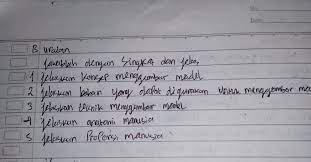 No:
Date:
B uraian
Jawablah dengan Singkat dan jelas
1 jelaskan konsep menggambar model
2 jelaskan bahan yang dapat digunakan untuk menggambar mo
3 jelaskan teknik menggambar model
4 jelaskan anatomi manusia
5 jelaskan Proporsi manusia